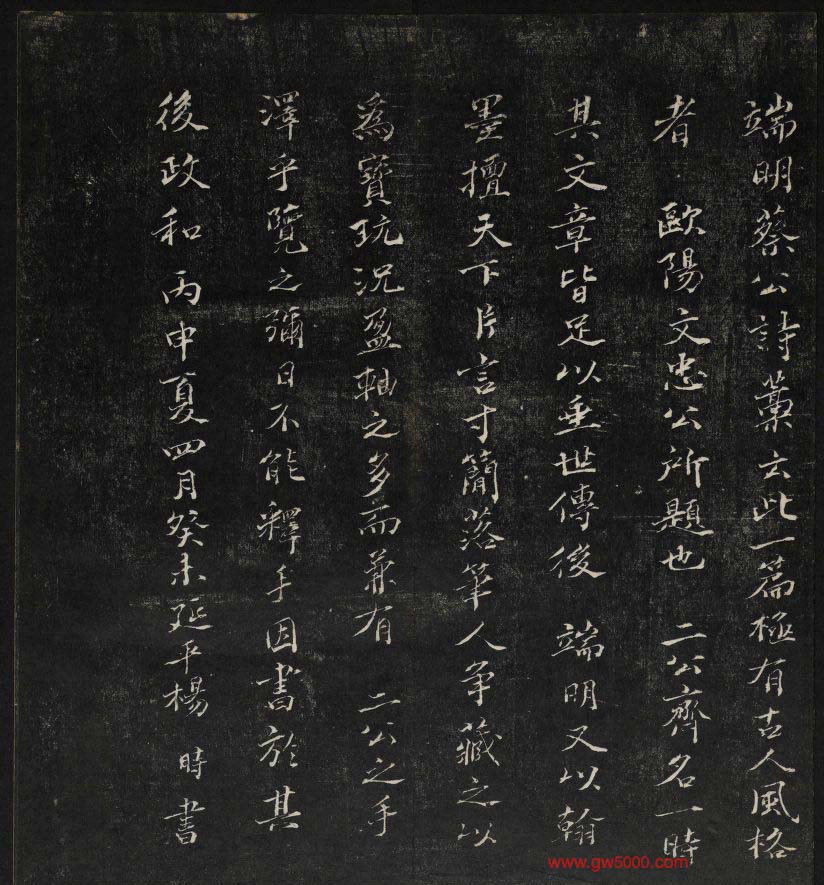 端明蔡公詩藁云此一篇極有古人風格
者 歐陽文忠公所題也 二公齊名一時
其文章皆足以垂世傳後 端明又以翰
墨擅天下片言寸簡落筆人争藏之以
為寳玩況盈軸之多而兼有 二公之手
澤乎覽之彌日不能釋手因書於其
後政和丙申夏四月癸未延平楊 時書
www.gw5000.com